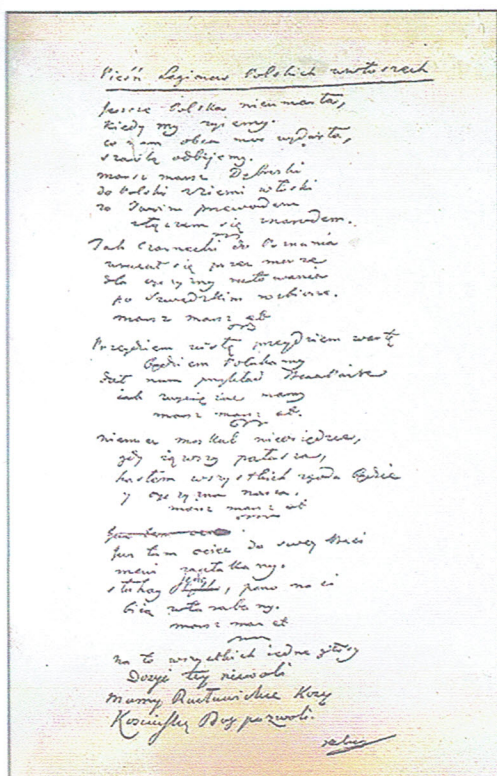 Pieśń Legionów Polskich we Włoszech
Jeszcze Polska nie umarła,
kiedy my żyjemy.
co nam obca moc wydarła,
szablą odbijemy.
marsz marsz Dąbrowski
do Polski z ziemi włoski
za Twoim przewodem
złączem się z narodem.
Jak Czarnecki do Poznania
wracał się przez morze
dla ojczyzny ratowania
po Szwedzkim rozbiorze.
marsz marsz et
Przejdziem Wisłę przejdziem Wartę
będziem Polakamy
dał nam przykład Bonaparte
jak zwyciężać mamy
marsz marsz et.
niemiec moskal nieosiędzie,
gdy jąwszy pałasza,
hasłem wszystkich zgoda będzie
y ojczyzna nasza.
marsz marsz et
Już tam ociec do swey Basi
mówi zapłakany.
słuchay jeno, pono nasi
biją w tarabany.
marsz mar et
na to wszystkich jedne głosy
Dosyć tey niewoli
mamy Racławickie Kosy
Kościuszkę Bog pozwoli.